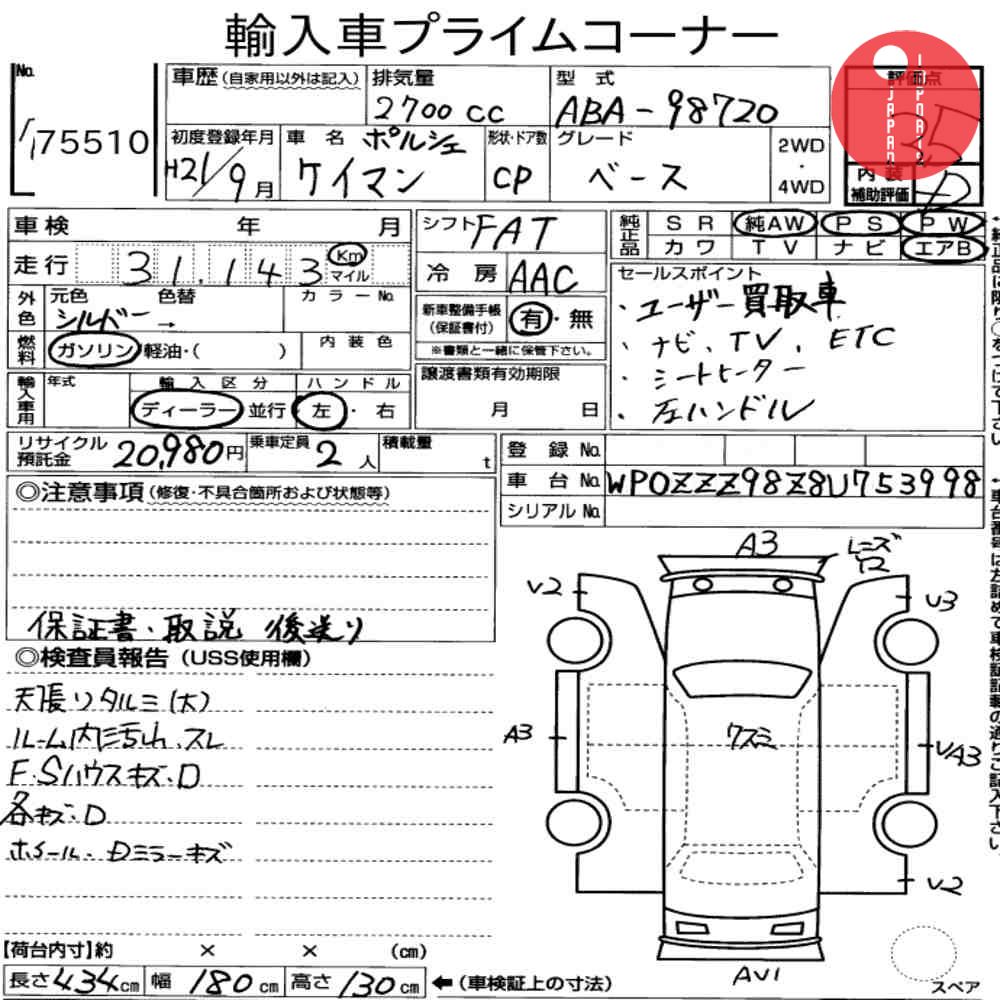 輸入車プライムコーナー
No.
75510
車歴 (自家用以外は記入)
排気量
2700 CC
型式
ABA-98720
評価点
35
JAPAN
IMPORT
初度登録年月
H21/9月
車名 ポルシェ
ケイマン
形状・ドア数
CP
グレード
ベース
2WD
・
4WD
内装
補助評価
D
車検 年 月
走行 31,143 Km マイル
外色
元色 色替 カラーNo.
シルバー →
燃料
ガソリン・軽油・( )
内装色
輸入車用
年式
輸入区分
ディーラー・並行
ハンドル
左・右
シフト FAT
冷房 AAC
新車整備手帳
(保証書付)
有・無
※書類と一緒に保管下さい。
譲渡書類有効期限
月 日
純正品
SR 純AW PS PW
カワ TV ナビ エアB
セールスポイント
・ユーザー買取車
・ナビ、TV、ETC
・シートヒーター
・左ハンドル
リサイクル
預託金 20,980円
乗車定員 2人
積載量 t
登録No.
車台No. WP0ZZZ98Z8U753998
シリアルNo.
◎注意事項 (修復・不具合箇所および状態等)
保証書・取説 後送り
◎検査員報告 (USS使用欄)
天張リタルミ(大)
ルーム内ニ汚レ、スレ
F.Sハウスキズ・D
各キズ・D
ホイール・Dミラーキズ
A3
レンズ
V2
V3
A3
クスミ
VA3
V2
AV1
スペア
【荷台内寸】約 × × (cm)
長さ 434cm 幅 180cm 高さ 130cm ←(車検証上の寸法)